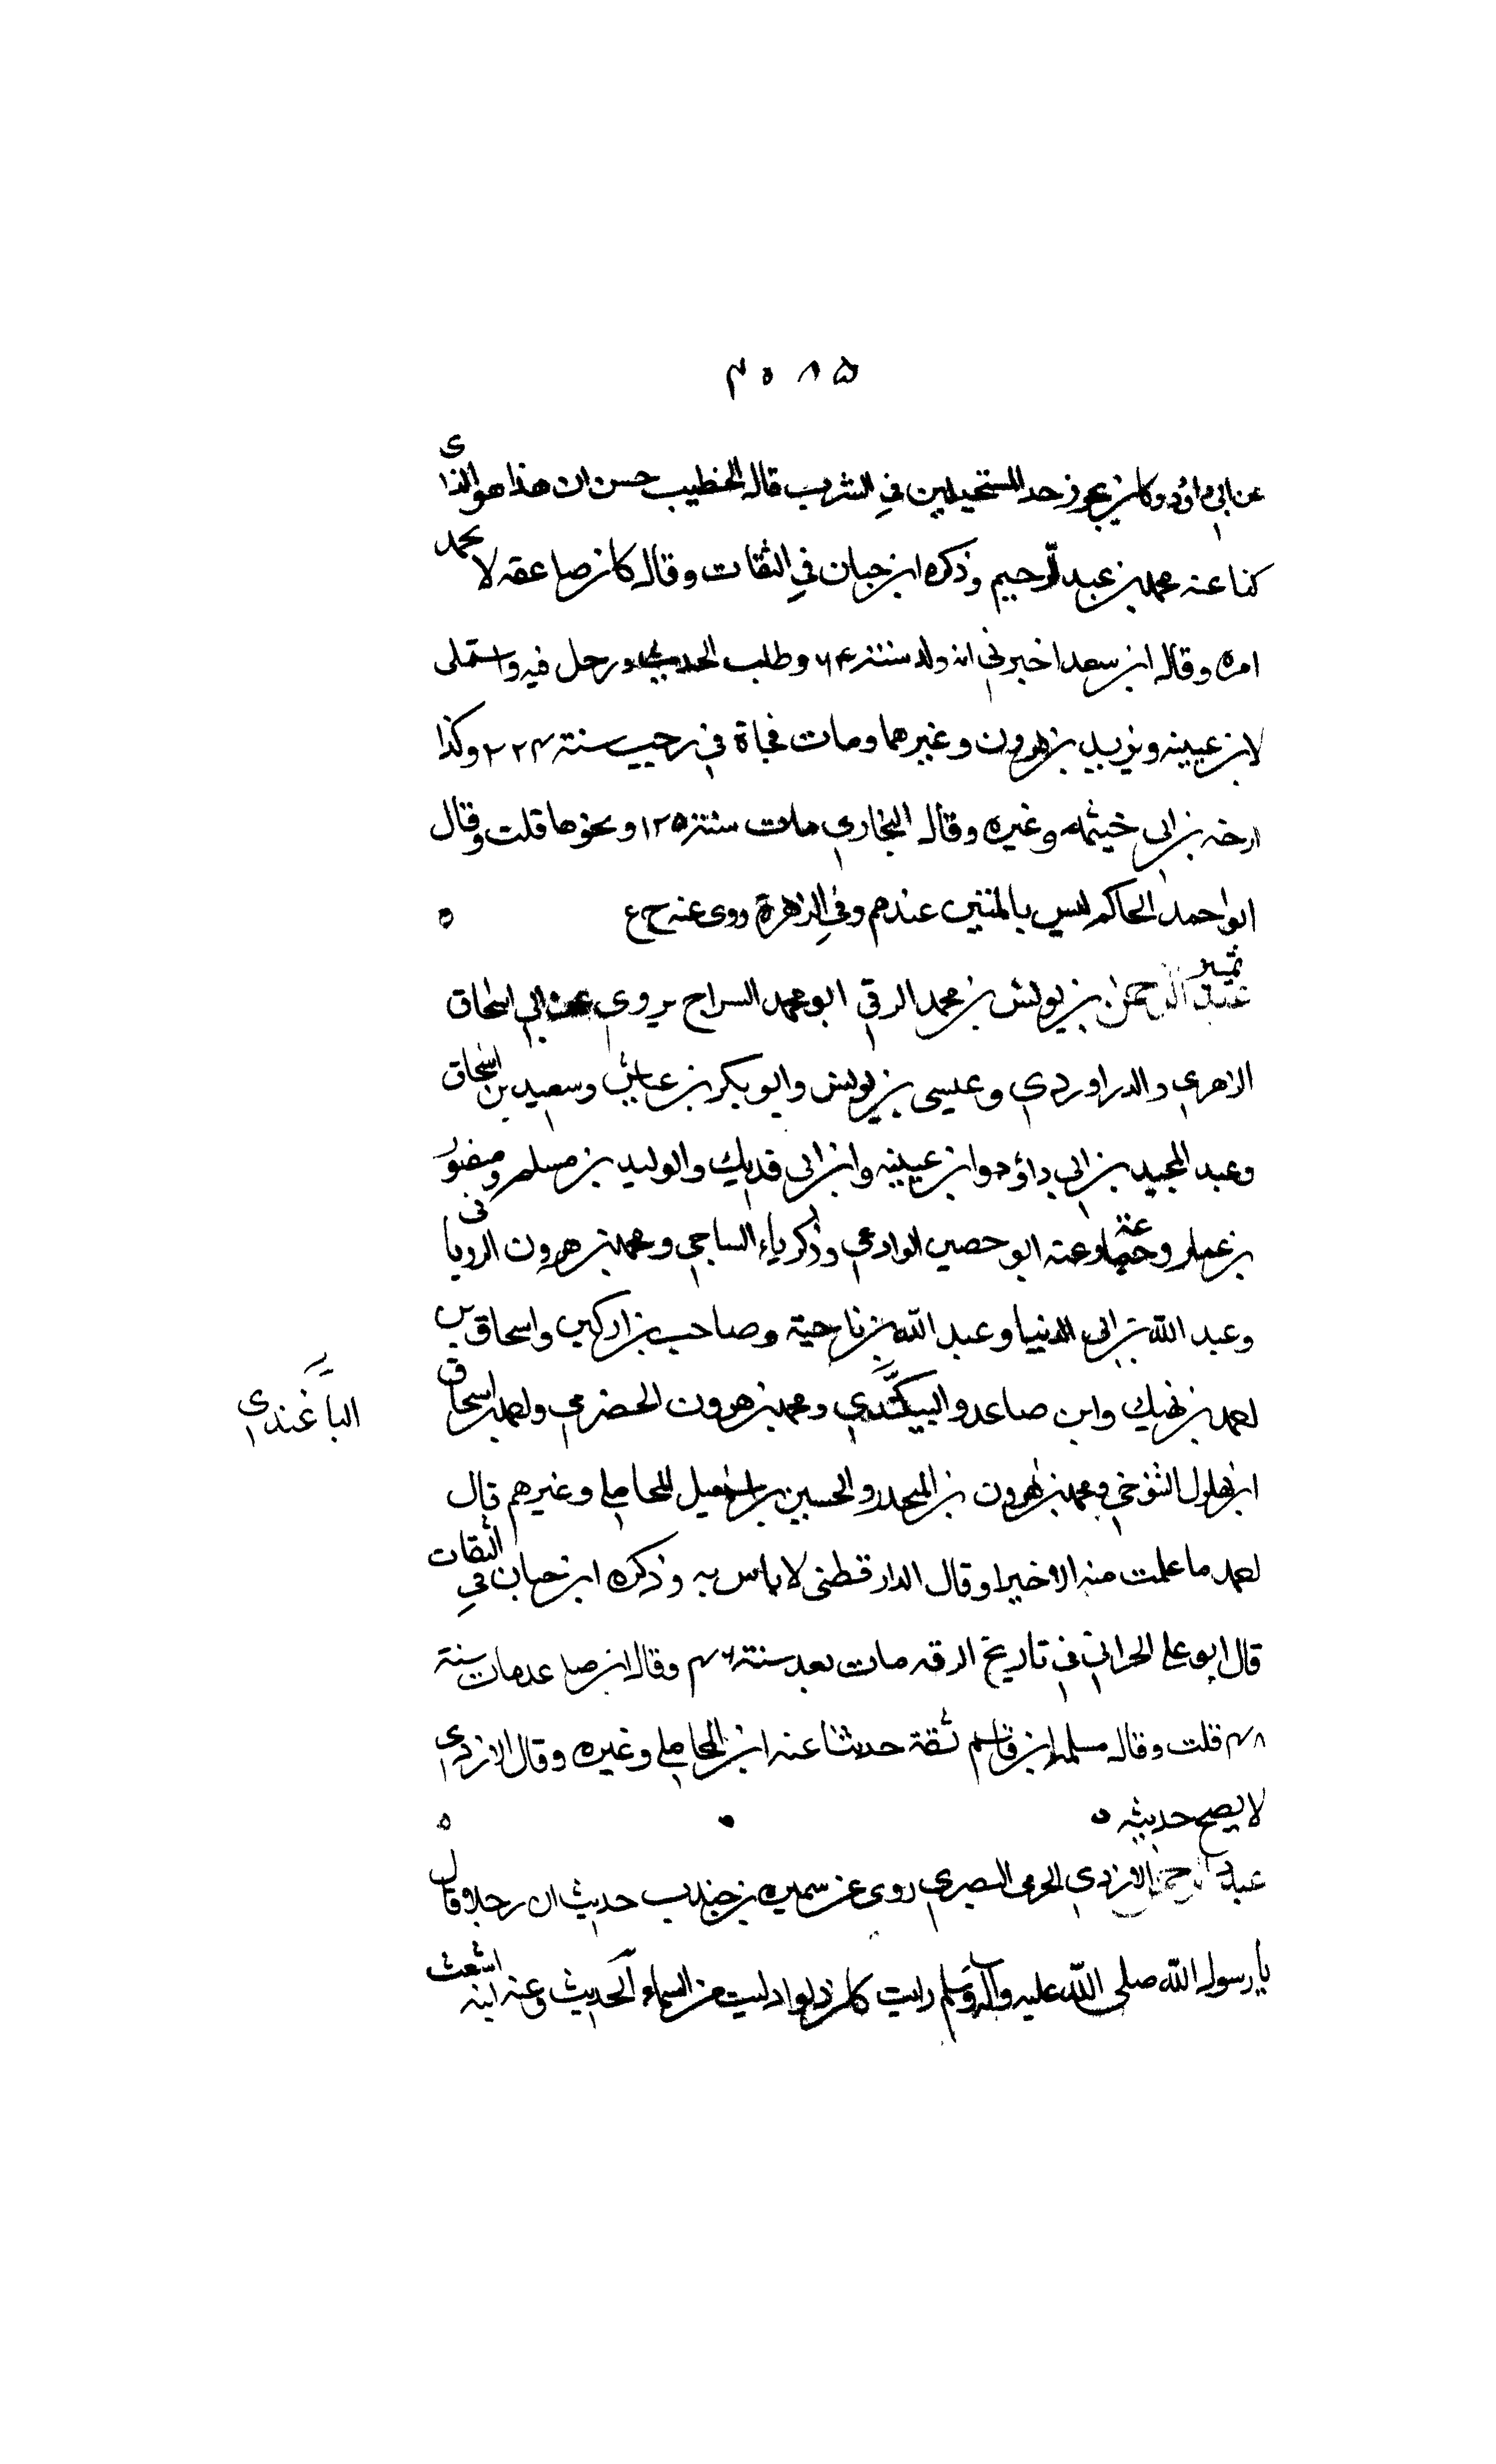 ۴۰۸۵
عن ابي داؤد وكان يجوز حد المستحيلين في الشرب قال الخطيب حسن ان هذا هو الذى
كنا عنه محمد بن عبد الرحيم وذكره ابن حبان في الثقات وقال كان صاعقه لا يحمد
امره وقال ابن سعد اخبرني انه ولد سنة ۶۴ وطلب الحديث ورحل فيه واستملى
لابن عيينه ويزيد بن هرون وغيرهما ومات فجاة في رجب سنة ۲۲۴ وكذا
ارخه بن ابى خيثمه وغيره وقال البخاري مات سنة ۱۲۵ ونحوها قلت وقال
ابو احمد الحاكم ليس بالمتين عندهم وفي الزهرة روى عنه خ ع
تميز
عبد الرحمن بن يونس بن محمد الرقي ابو محمد السراج يروي عن ابي اسحاق
الاهري والدراوردي وعيسى بن يونس وابو بكر بن عياش وسعيد بن اسحاق
وعبد المجيد بن ابي داؤد وابن عيينه وابن ابى فديك والوليد بن مسلم ومنصور
بن عمار وعنه ابو حصين الوادعي وذكرياء الساجي ومحمد بن هرون الرويانى
وعبد الله بن ابى الدنيا وعبد الله بن ناحية وصاحب بن اركين واسحاق بن
احمد بن نهيك وابن صاعد والبيكندي ومحمد بن هرون الحضرمي واحمد بن اسحاق
الباغندى
ابن بهلول التنوخي ومحمد بن هرون بن المجدر والحسين بن اسمعيل المحاملي وغيرهم قال
احمد ما علمت منه الا خيرا وقال الدارقطنى لا باس به وذكره ابن حبان في الثقات
قال ابو علي الحراني في تاريخ الرقه مات بعد سنة ۴۶ وقال ابن صاعد مات سنة
۴۸ قلت وقال مسلمه ابن قاسم ثقة حدثنا عنه ابن المحاملي وغيره وقال الازدي
لا يصح حديثه
عبد الرحمن الازدي الجرمى البصري روى عن سمره بن جندب حديث ان رجلا قال
يا رسول الله صلى الله عليه وآله وسلم رايت كان دلوا دليت من السماء الحديث وعنه ابنه اشعث